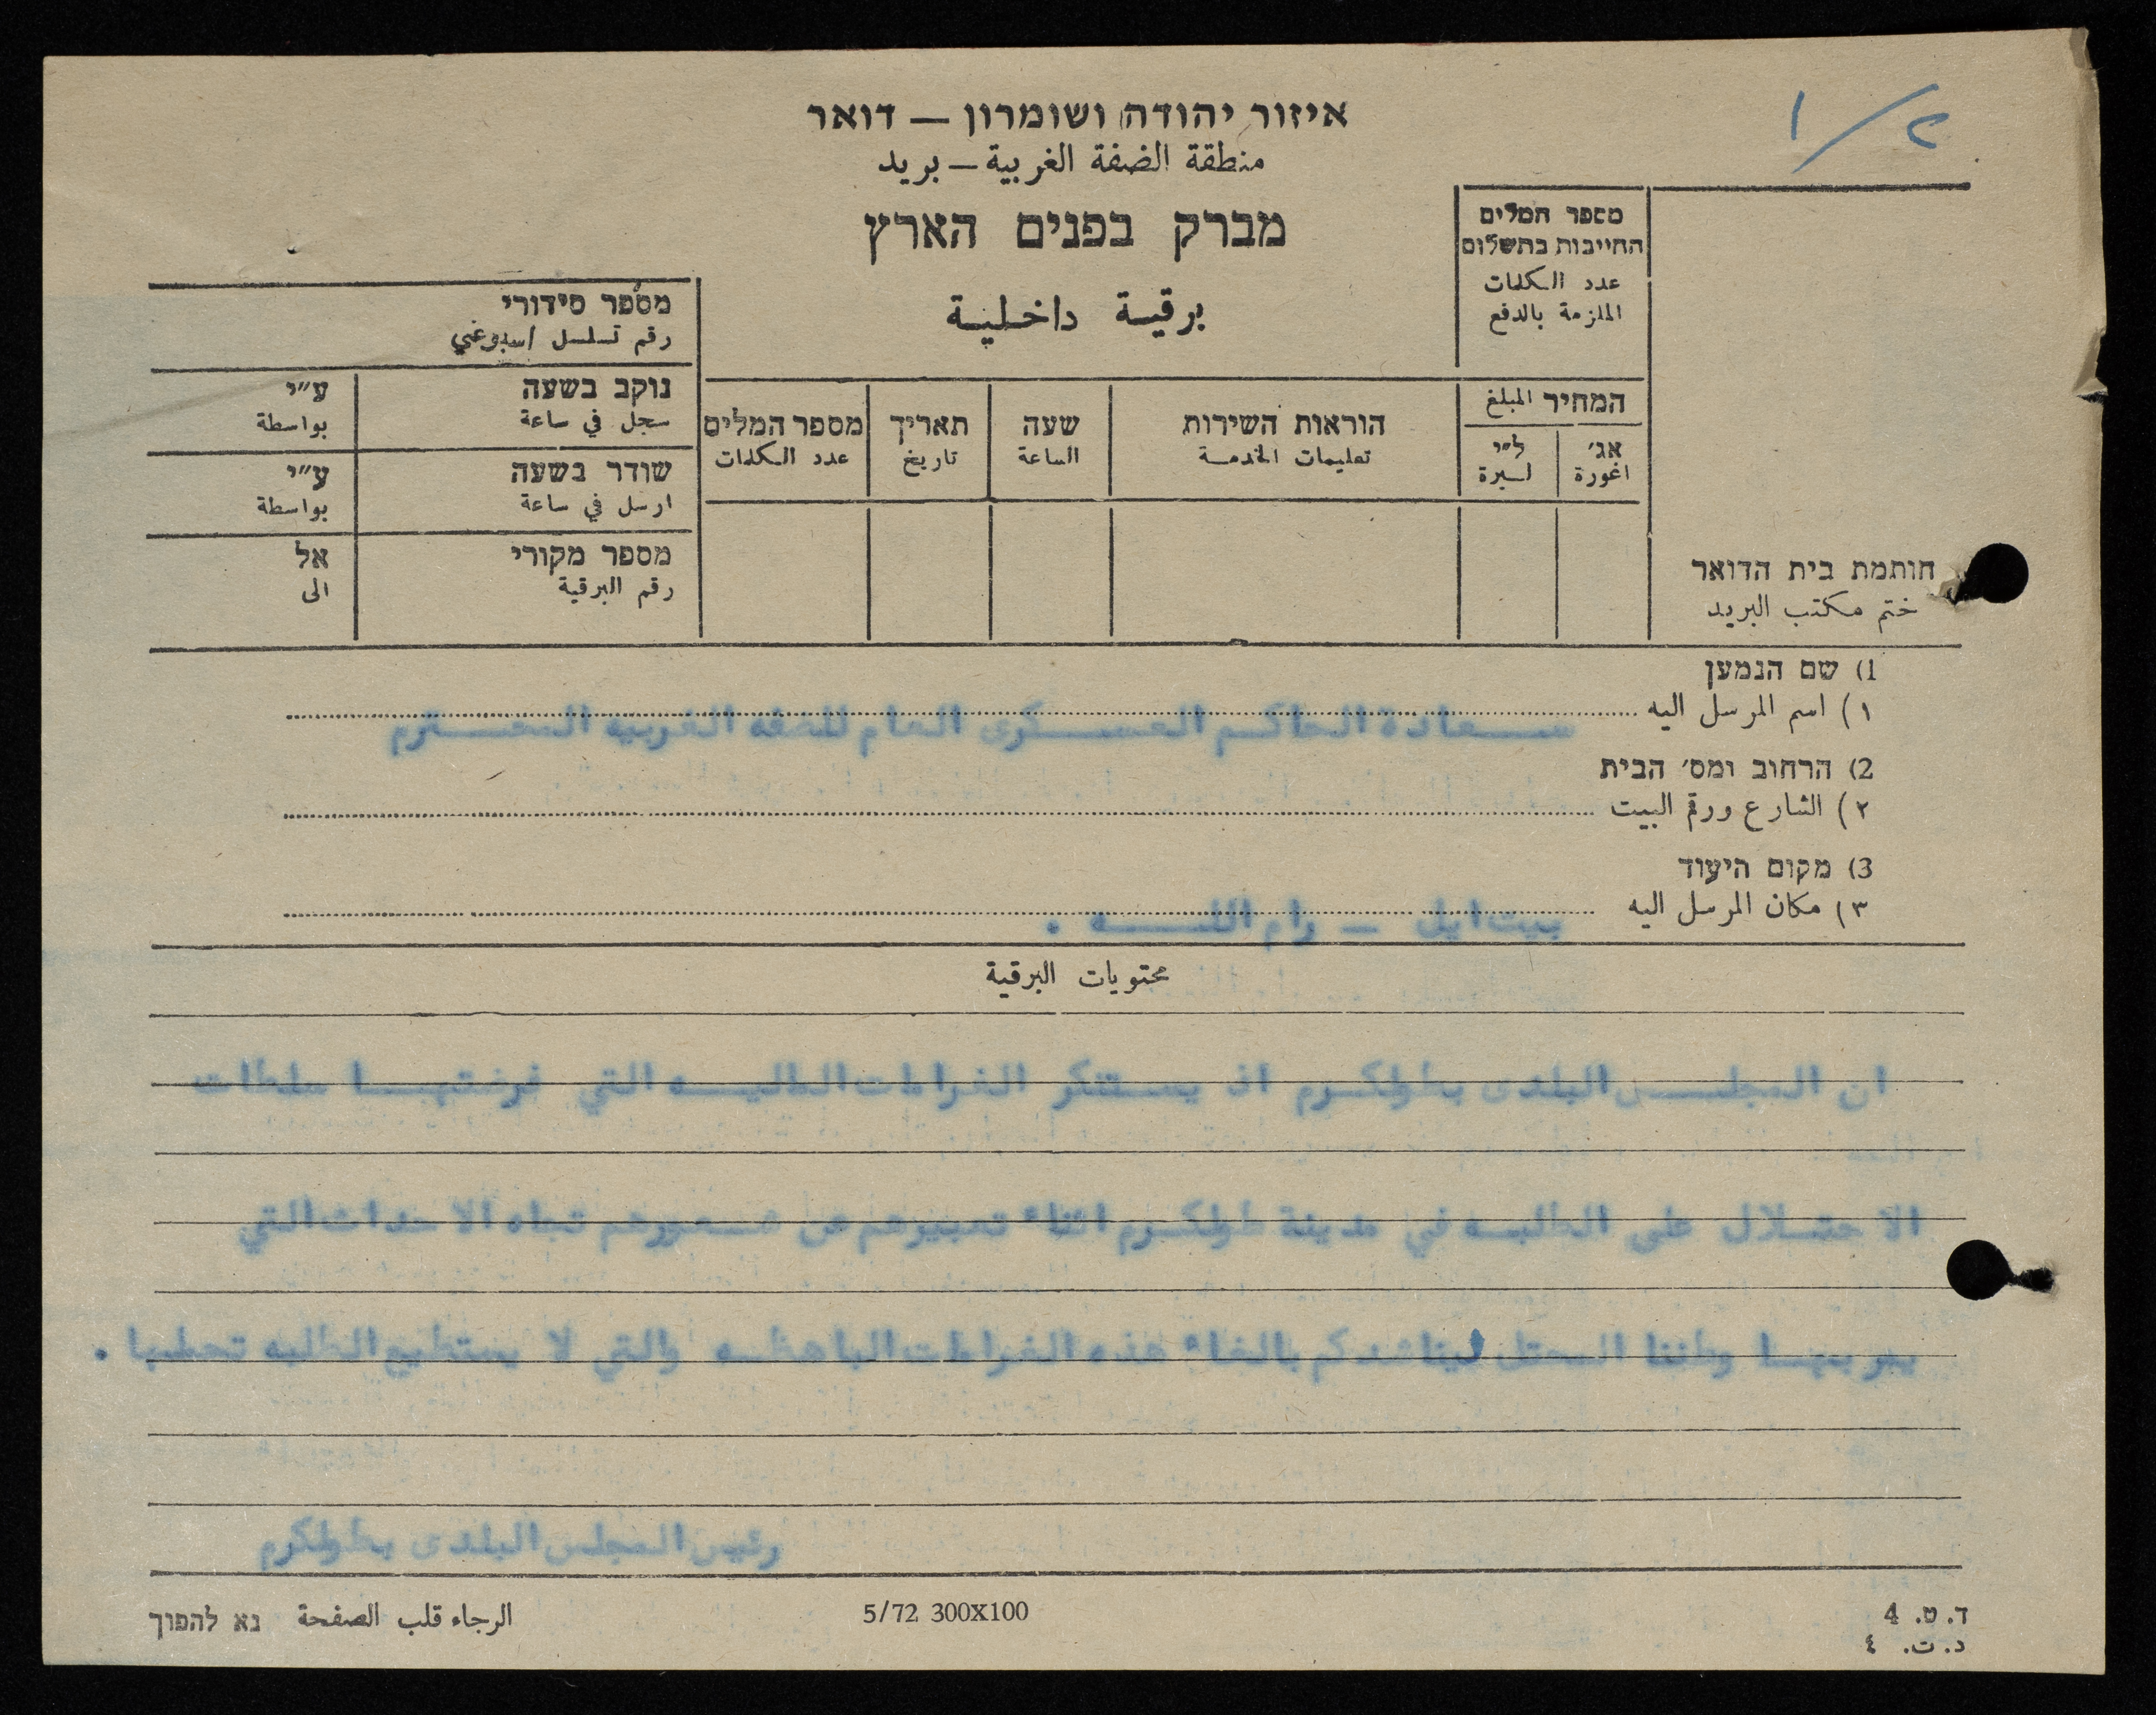 ١/٢
איזור יהודה ושומרון — דואר
منطقة الضفة الغربية — بريد
מברק בפנים הארץ
برقية داخلية
מספר המלים
החייבות בתשלום
عدد الكلمات
الملزمة بالدفع
מספר סידורי
رقم تسلسل اسبوعي
נוקב בשעה ע״י
سجل في ساعة بواسطة
שודר בשעה ע״י
ارسل في ساعة بواسطة
מספר מקורי אל
رقم البرقية الى
המחיר المبلغ
אג׳ ל״י
اغورة ليرة
הוראות השירות
تعليمات الخدمة
שעה
الساعة
תאריך
تاريخ
מספר המלים
عدد الكلمات
חותמת בית הדואר
ختم مكتب البريد
1) שם הנמען
١) اسم المرسل اليه
سعادة الحاكم العسكرى العام للضفه الغربيه المحترم
2) הרחוב ומס׳ הבית
٢) الشارع ورقم البيت
3) מקום היעוד
٣) مكان المرسل اليه
بيت ايل — رام الله .
محتويات البرقية
ان المجلس البلدى بطولكرم اذ يستنكر الغرامات الماليه التي فرضتها سلطات
الاحتلال على الطلبه في مدينة طولكرم اثناء تعبيرهم عن شعورهم تجاه الاحداث التي
يمر بها وطننا المحتل ليناشدكم بالغاء هذه الغرامات الباهظه والتي لا يستطيع الطلبه تحملها .
رئيس المجلس البلدى بطولكرم
ד. ט. 4
د. ت. ٤
5/72 300X100
الرجاء قلب الصفحة נא להפוך